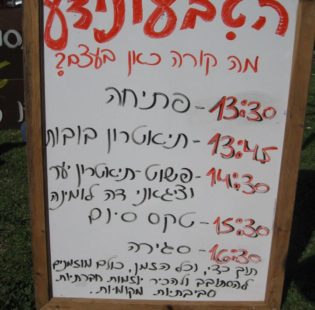 הטבעונידע
מה קורה כאן בעצם?
13:30 - פתיחה
13:45 - תיאטרון בובות
14:30 - פשוט-תיאטרון יער
וצגאני דה לומינה
15:30 - טקס סיום
16:30 - סגירה
תוך כדי, וכל הזמן, כולם מוזמנים
להסתובב ולהכיר יוזמות חברתיות
סביבתיות מקומיות.